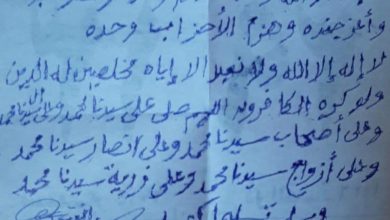 وأعز جنده وهزم الأحزاب وحده
لا إله إلا الله ولا نعبد إلا إياه مخلصين له الدين
ولو كره الكافرون اللهم صلى على سيدنا محمد وعلى آل سيدنا محمد
وعلى أصحاب سيدنا محمد وعلى انصار سيدنا محمد
وعلى أزواج سيدنا محمد وعلى ذرية سيدنا محمد